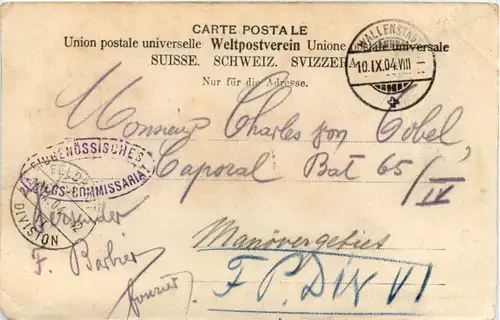 CARTE POSTALE
Union postale universelle Weltpostverein Unione postale universale
SUISSE. SCHWEIZ. SVIZZERA
Nur für die Adresse.
WALLENSTADT
10.IX.04.VIII
Monsieur Charles von Tobel,
Caporal Bat 65/IV
EIDGENÖSSISCHES
KRIEGS-COMMISSARIAT
FELDPOST
DIVISION
Versender
F. Barbier
fourier
Manövergebiet
FP. Div VI